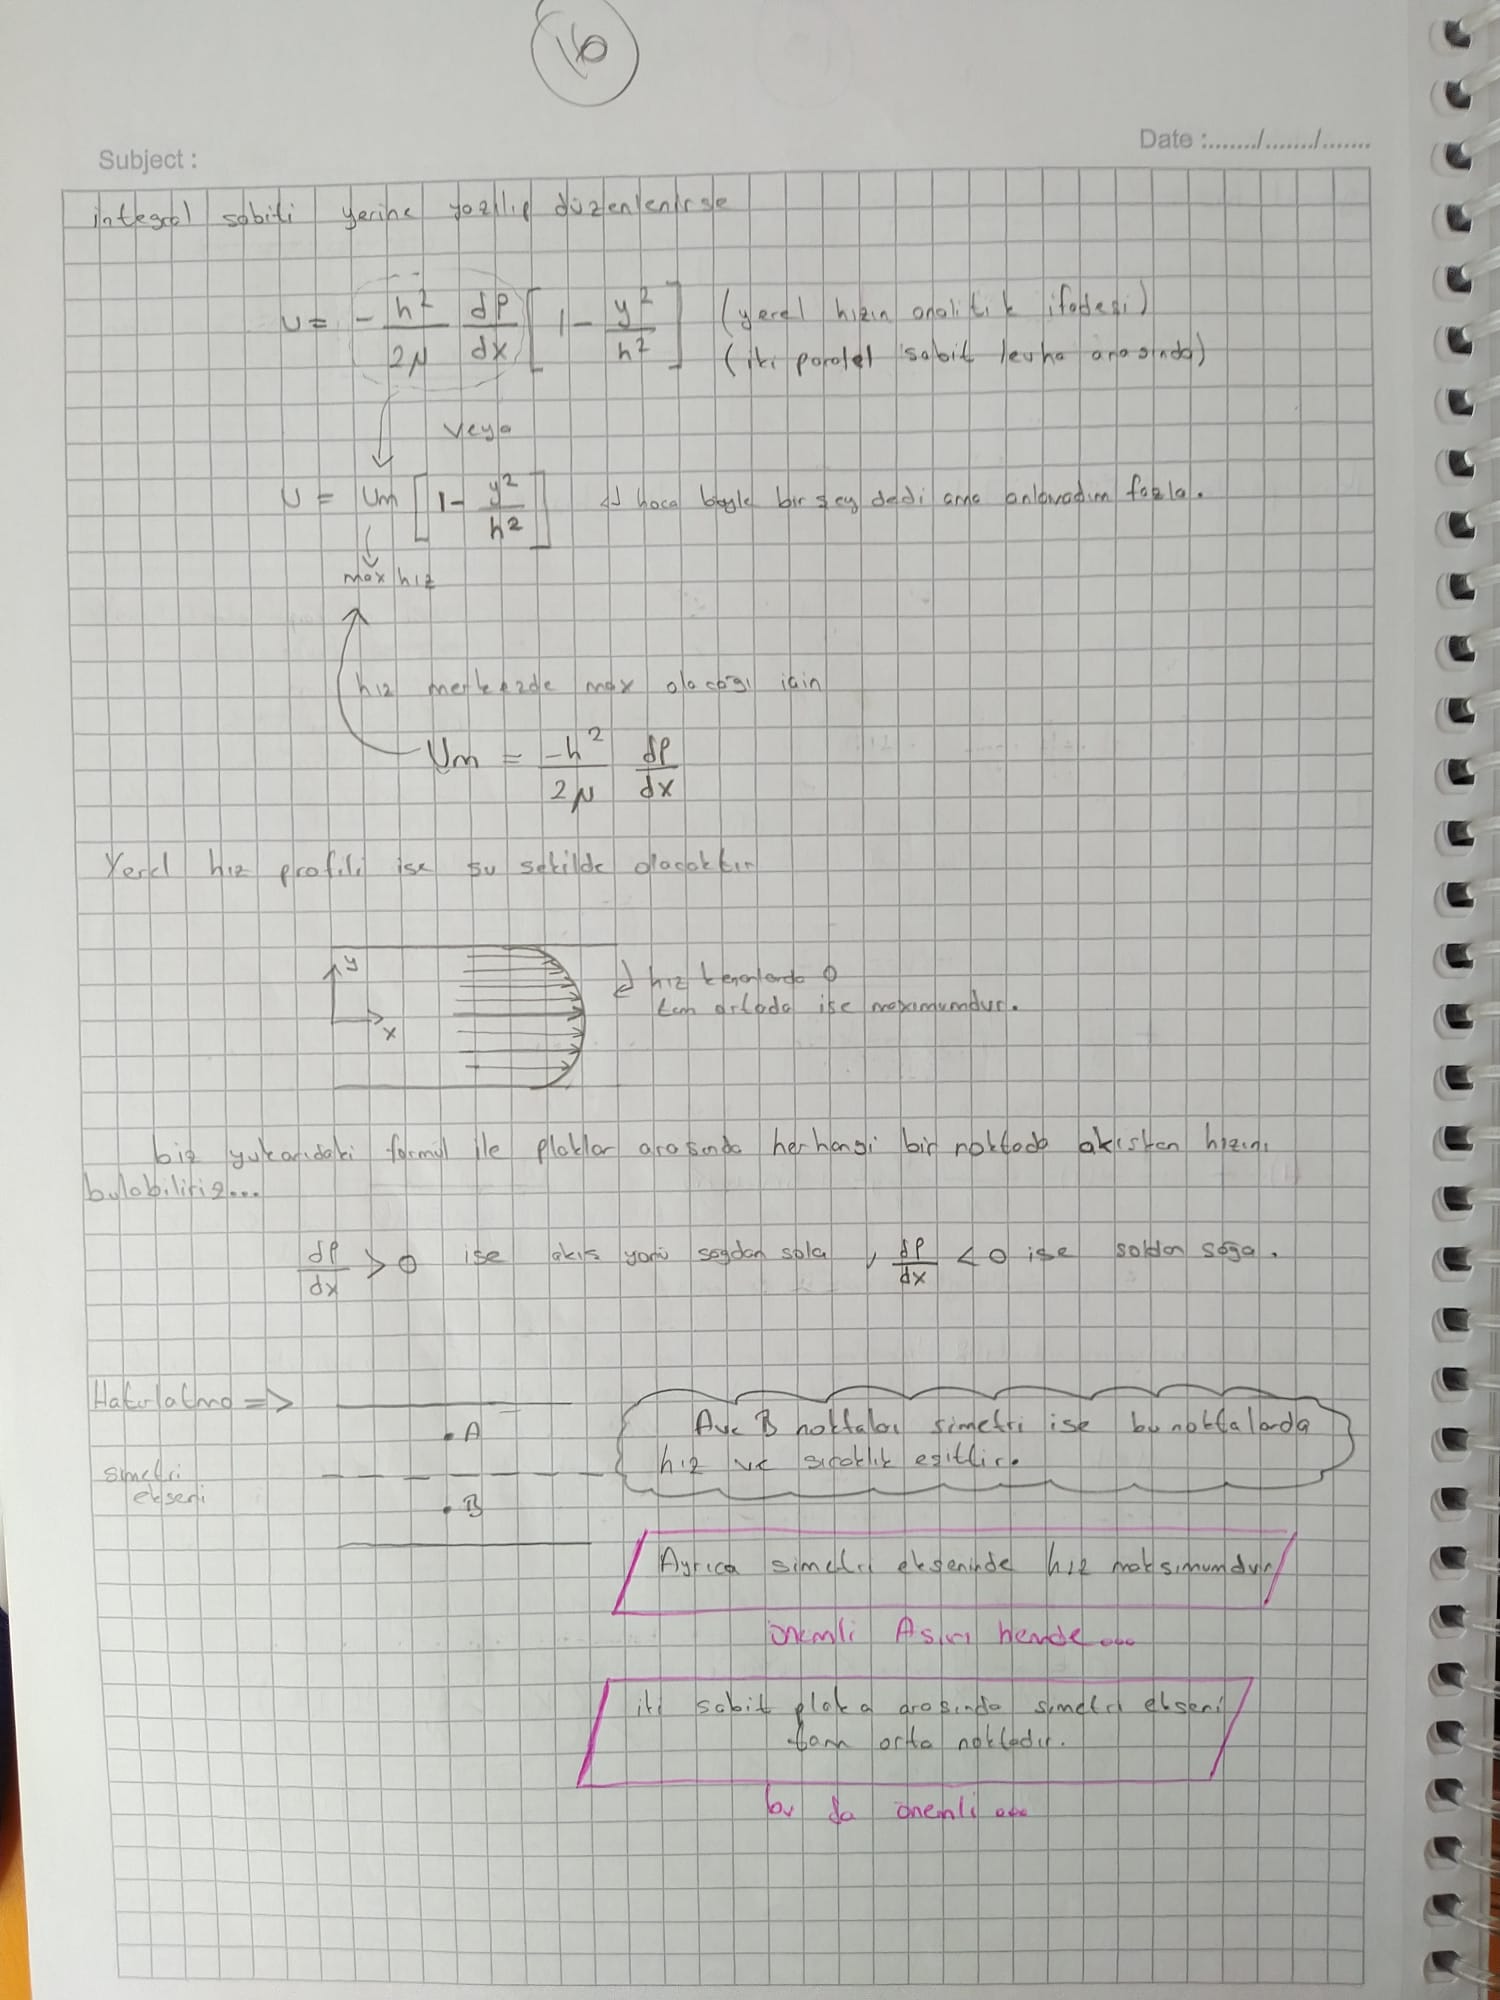 16
Subject :
Date :......./......./.......
integral sabiti yerine yazılıp düzenlenirse
u = - h²/2μ dP/dx [1 - y²/h²] (yerel hızın analitik ifadesi)
(iki paralel sabit levha arasında)
veya
u = Um [1 - y²/h²] hoca böyle bir şey dedi ama anlamadım fazla.
max hız
hız merkezde max olacağı için
Um = -h²/2μ dP/dx
Yerel hız profili ise şu şekilde olacaktır
y
x
hız kenarlarda 0
tam ortada ise maxımumdur.
biz yukarıdaki formül ile plaklar arasında herhangi bir noktada akışkan hızını
bulabiliriz...
dP/dx > 0 ise akış yönü sağdan sola, dP/dx < 0 ise soldan sağa.
Hatırlatma =>
A
A ve B noktaları simetri ise bu noktalarda
hız ve sıcaklık eşittir.
simetri
ekseni
B
Ayrıca simetri ekseninde hız maksimumdur
önemli Aşırı hemde...
iki sabit plaka arasında simetri ekseni
tam orta noktadır.
bu da önemli...